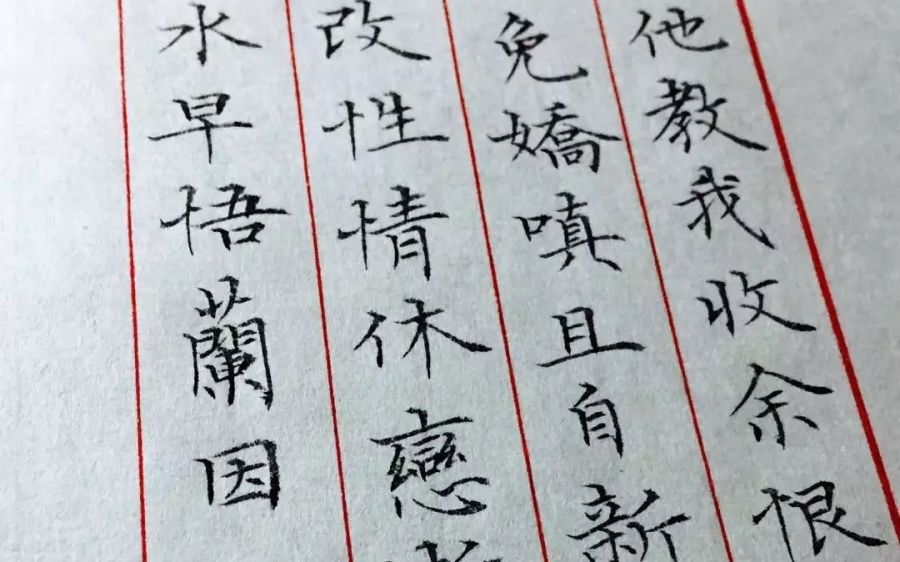 他教我收余恨
免嬌嗔且自新
改性情休戀
水早悟蘭因